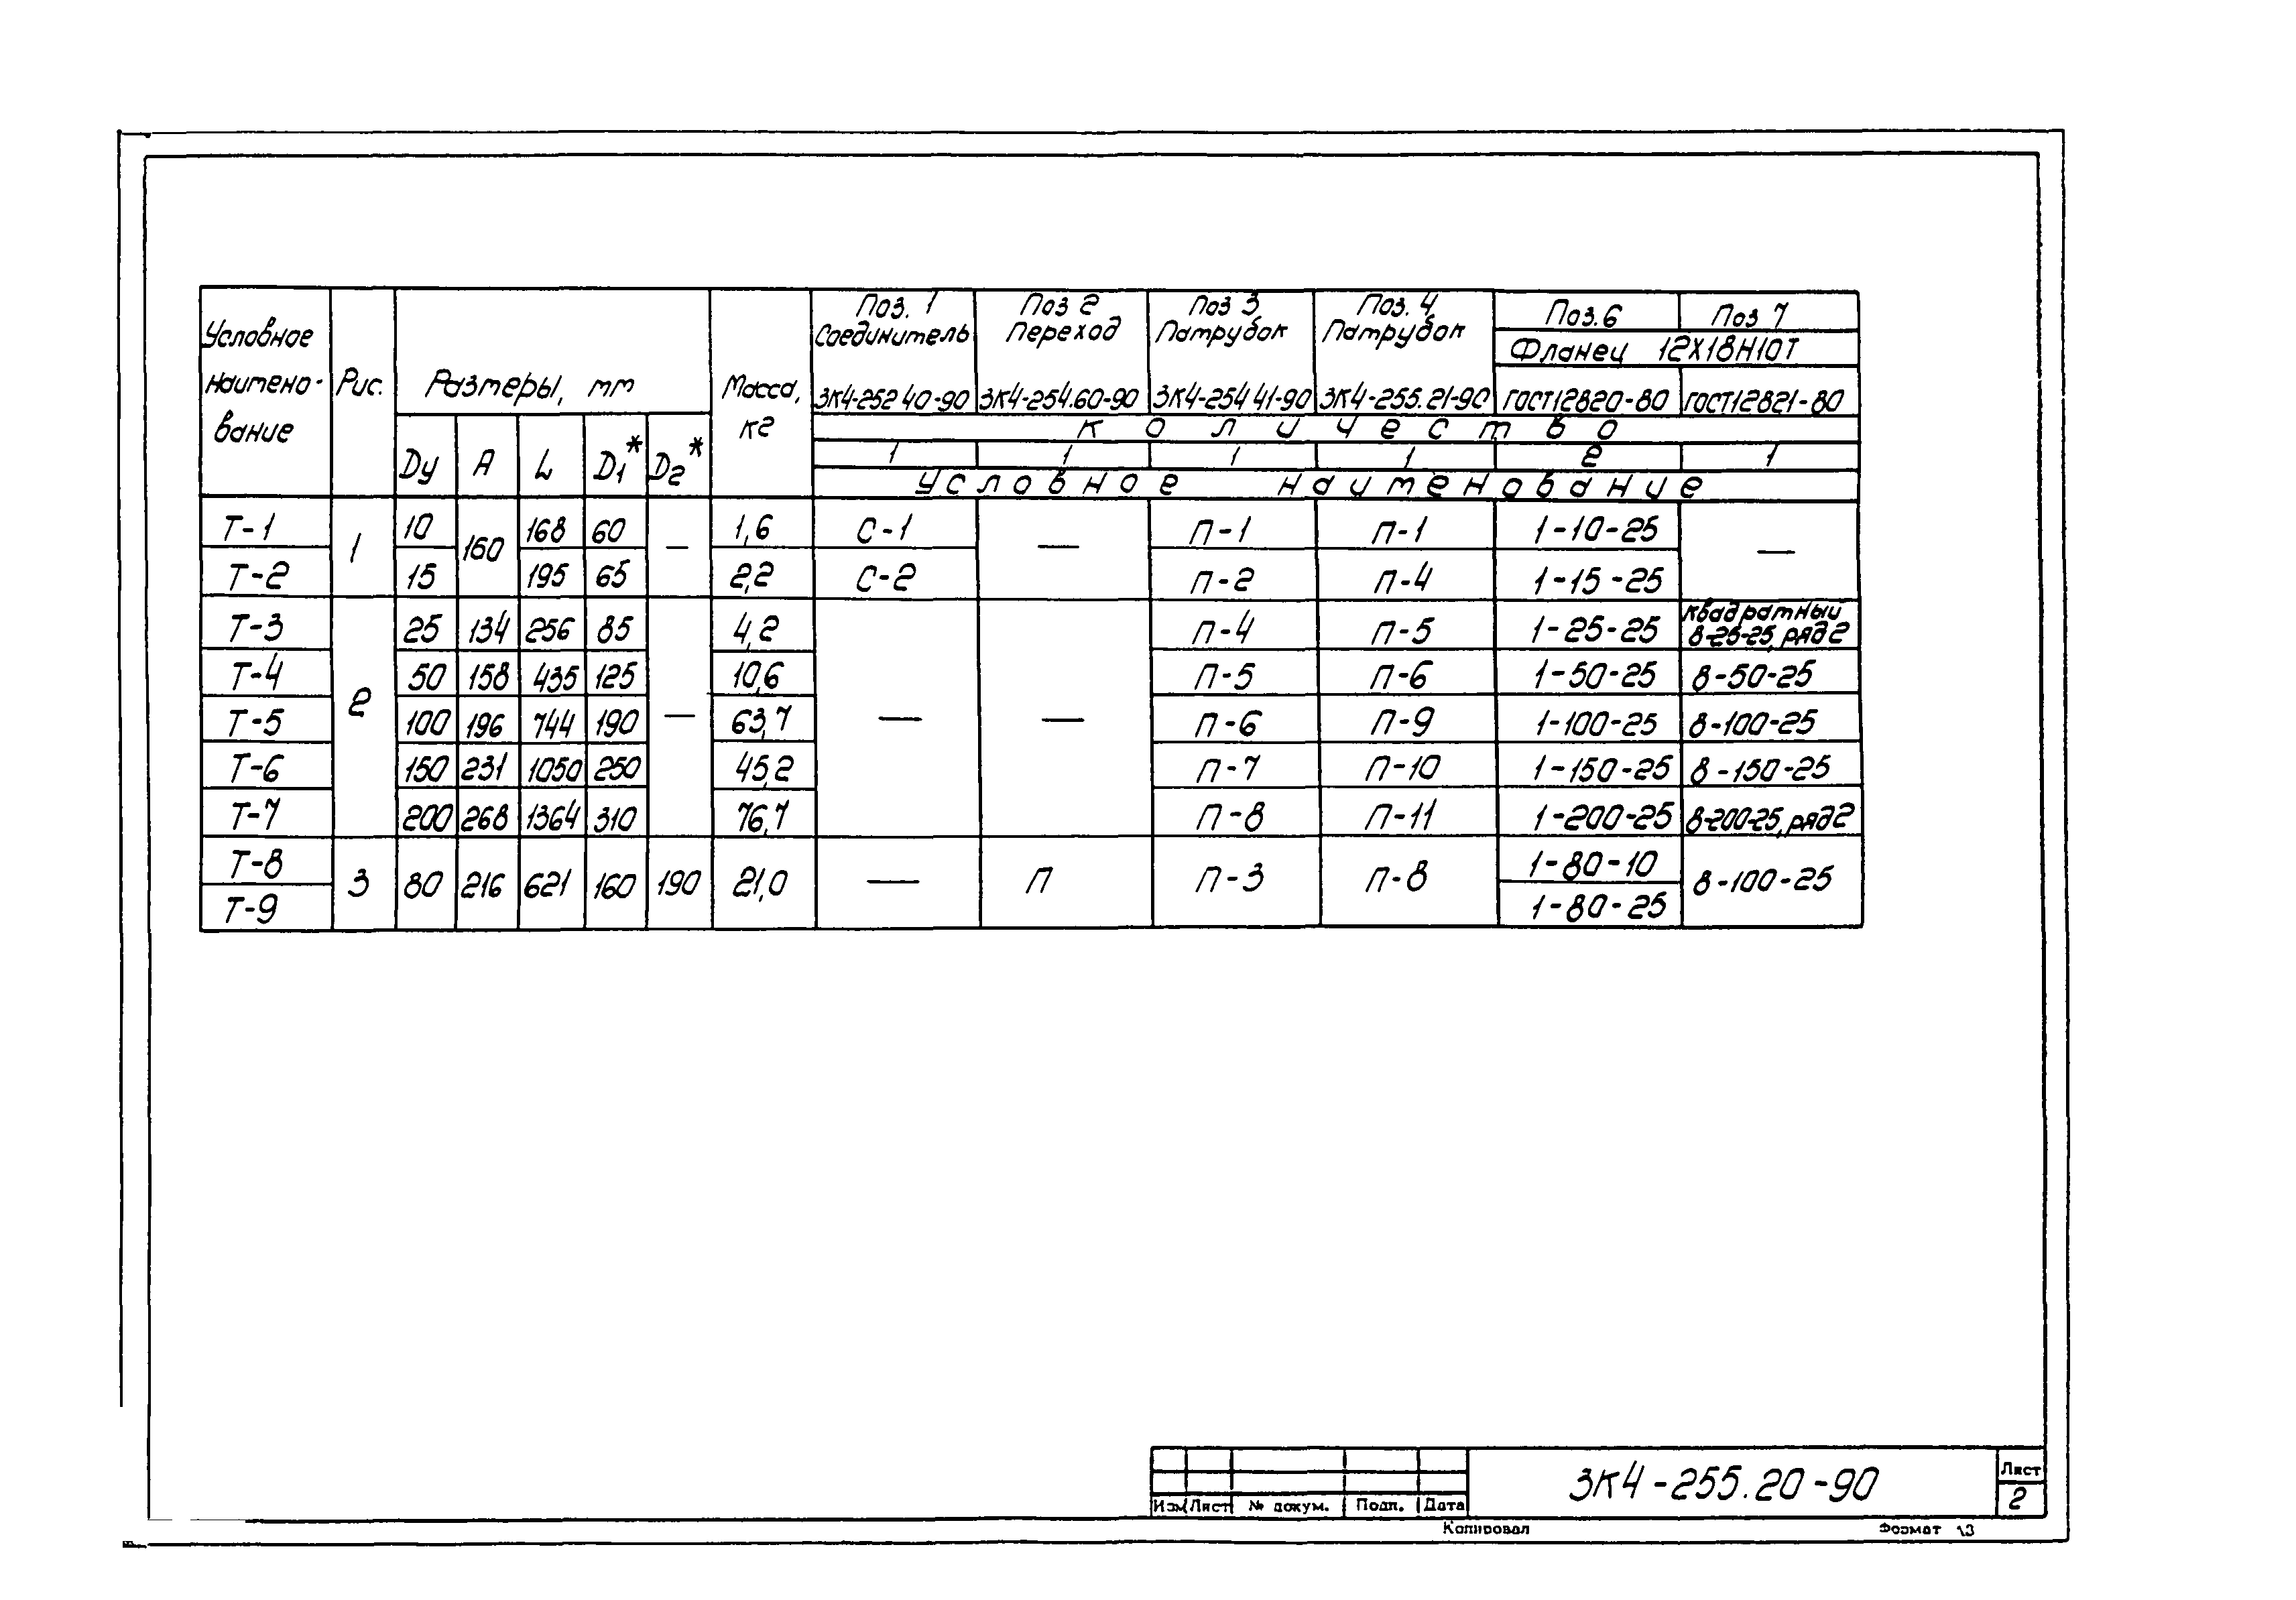 Условное наимено-вание Рис. Размеры, мм Масса, кг Поз. 1 Соединитель 3К4-252 40-90 Поз 2 Переход 3К4-254.60-90 Поз 3 Патрубок 3К4-254 41-90 Поз. 4 Патрубок 3К4-255.21-90 Поз.6 Поз 7
Фланец 12Х18Н10Т
ГОСТ12820-80 ГОСТ12821-80
Количество
Dу А L D1* D2* 1 1 1 1 2 1
Условное наименование
Т-1 1 10 160 168 60 — 1,6 С-1 — П-1 П-1 1-10-25 —
Т-2 15 195 65 2,2 С-2 П-2 П-4 1-15-25
Т-3 2 25 134 256 85 — 4,2 — — П-4 П-5 1-25-25 квадратный
8-25-25, ряд 2
Т-4 50 158 435 125 10,6 П-5 П-6 1-50-25 8-50-25
Т-5 100 196 744 190 63,7 П-6 П-9 1-100-25 8-100-25
Т-6 150 231 1050 250 45,2 П-7 П-10 1-150-25 8-150-25
Т-7 200 268 1364 310 76,7 П-8 П-11 1-200-25 8-200-25, ряд 2
Т-8 3 80 216 621 160 190 21,0 — П П-3 П-8 1-80-10 8-100-25
Т-9 1-80-25
3К4-255.20-90 Лист
2
Изм Лист № докум. Подп. Дата
Копировал Формат